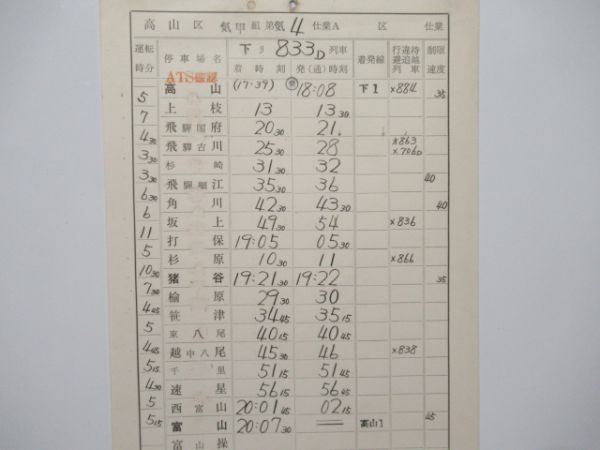 高山区 気甲組第気4仕業A 区 仕業
運転時分 停車場名 下り 833D 列車 着発線 行違待避追越列車 制限速度
着時刻 発(通)時刻
ATS確認
高山 (17:39) 18:08 下1 ×884 35
5
上枝 13 13 30
7
飛驒国府 20 30 21
4 30
飛驒古川 25 30 28 ×863 ×706D
3 30
杉崎 31 30 32
3 30 40
飛驒細江 35 30 36
6 30
角川 42 30 43 30 40
6
坂上 49 30 54 ×836
11
打保 19:05 05 30
5
杉原 10 30 11 ×866
10 30
猪谷 19:21 30 19:22 35
7 30
楡原 29 30 30
4 45
笹津 34 45 35 15
5
東八尾 40 15 40 45
4 45
越中八尾 45 30 46 ×838
5 15
千里 51 15 51 45
4 30
速星 56 15 56 45
5
西富山 20:01 45 02 15
5 15 45
富山 20:07 30 高山1
富山操